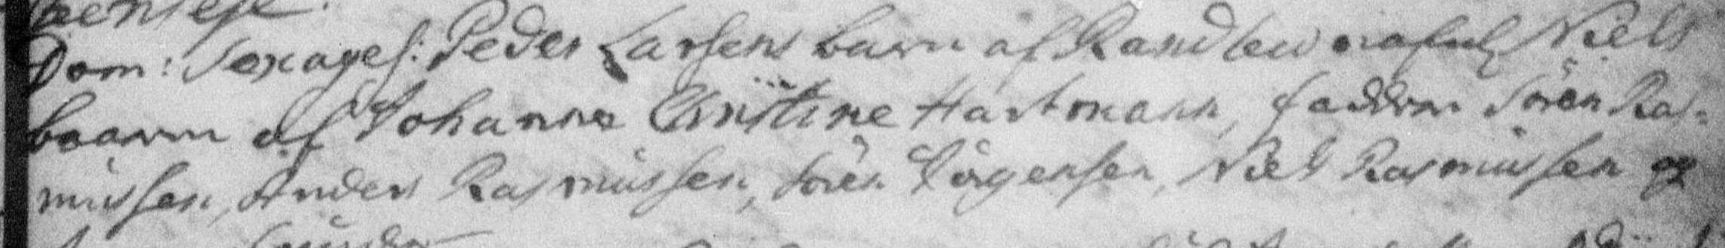 Dom: Sexages: Peder Larsens barn af Randlew nafnl Niels
baaren af Johanne Christine Hartmann, faddere Sören Ras=
mussen, Anders Rasmussen, Sören Jörgensen, Niels Rasmussen og